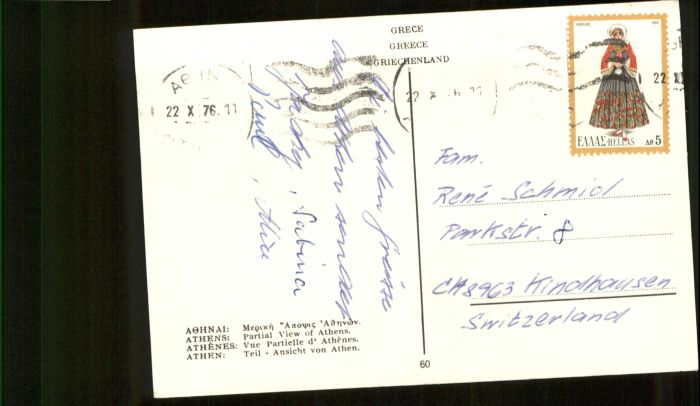 GRECE
GREECE
GRIECHENLAND
ΑΘΗΝ
22 X 76.11
22 X 76.11
22 X
ΕΛΛΑΣ-HELLAS ΔΡ. 5
Di besten Grüsse
aus Athen sendet
, Sabina
, Alice
Fam.
René Schmid
Parkstr. 8
CH 8963 Kindhausen
Switzerland
ΑΘΗΝΑΙ: Μερικὴ Ἄποψις Ἀθηνῶν.
ATHENS: Partial View of Athens.
ATHÈNES: Vue Partielle d' Athènes.
ATHEN: Teil - Ansicht von Athen.
60